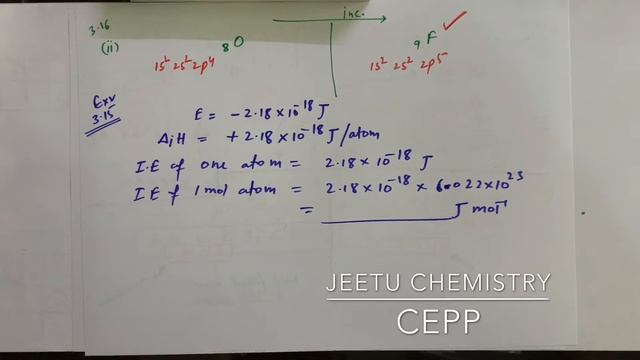 inc.
3.16
(ii) ₈O ₉F ✓
1s² 2s² 2p⁴ 1s² 2s² 2p⁵
Exr 3.15
E = -2.18 × 10⁻¹⁸ J
ΔiH = +2.18 × 10⁻¹⁸ J/atom
I.E of one atom = 2.18 × 10⁻¹⁸ J
I.E of 1 mol atom = 2.18 × 10⁻¹⁸ × 6.022 × 10²³
= ________ J mol⁻¹
JEETU CHEMISTRY
CEPP